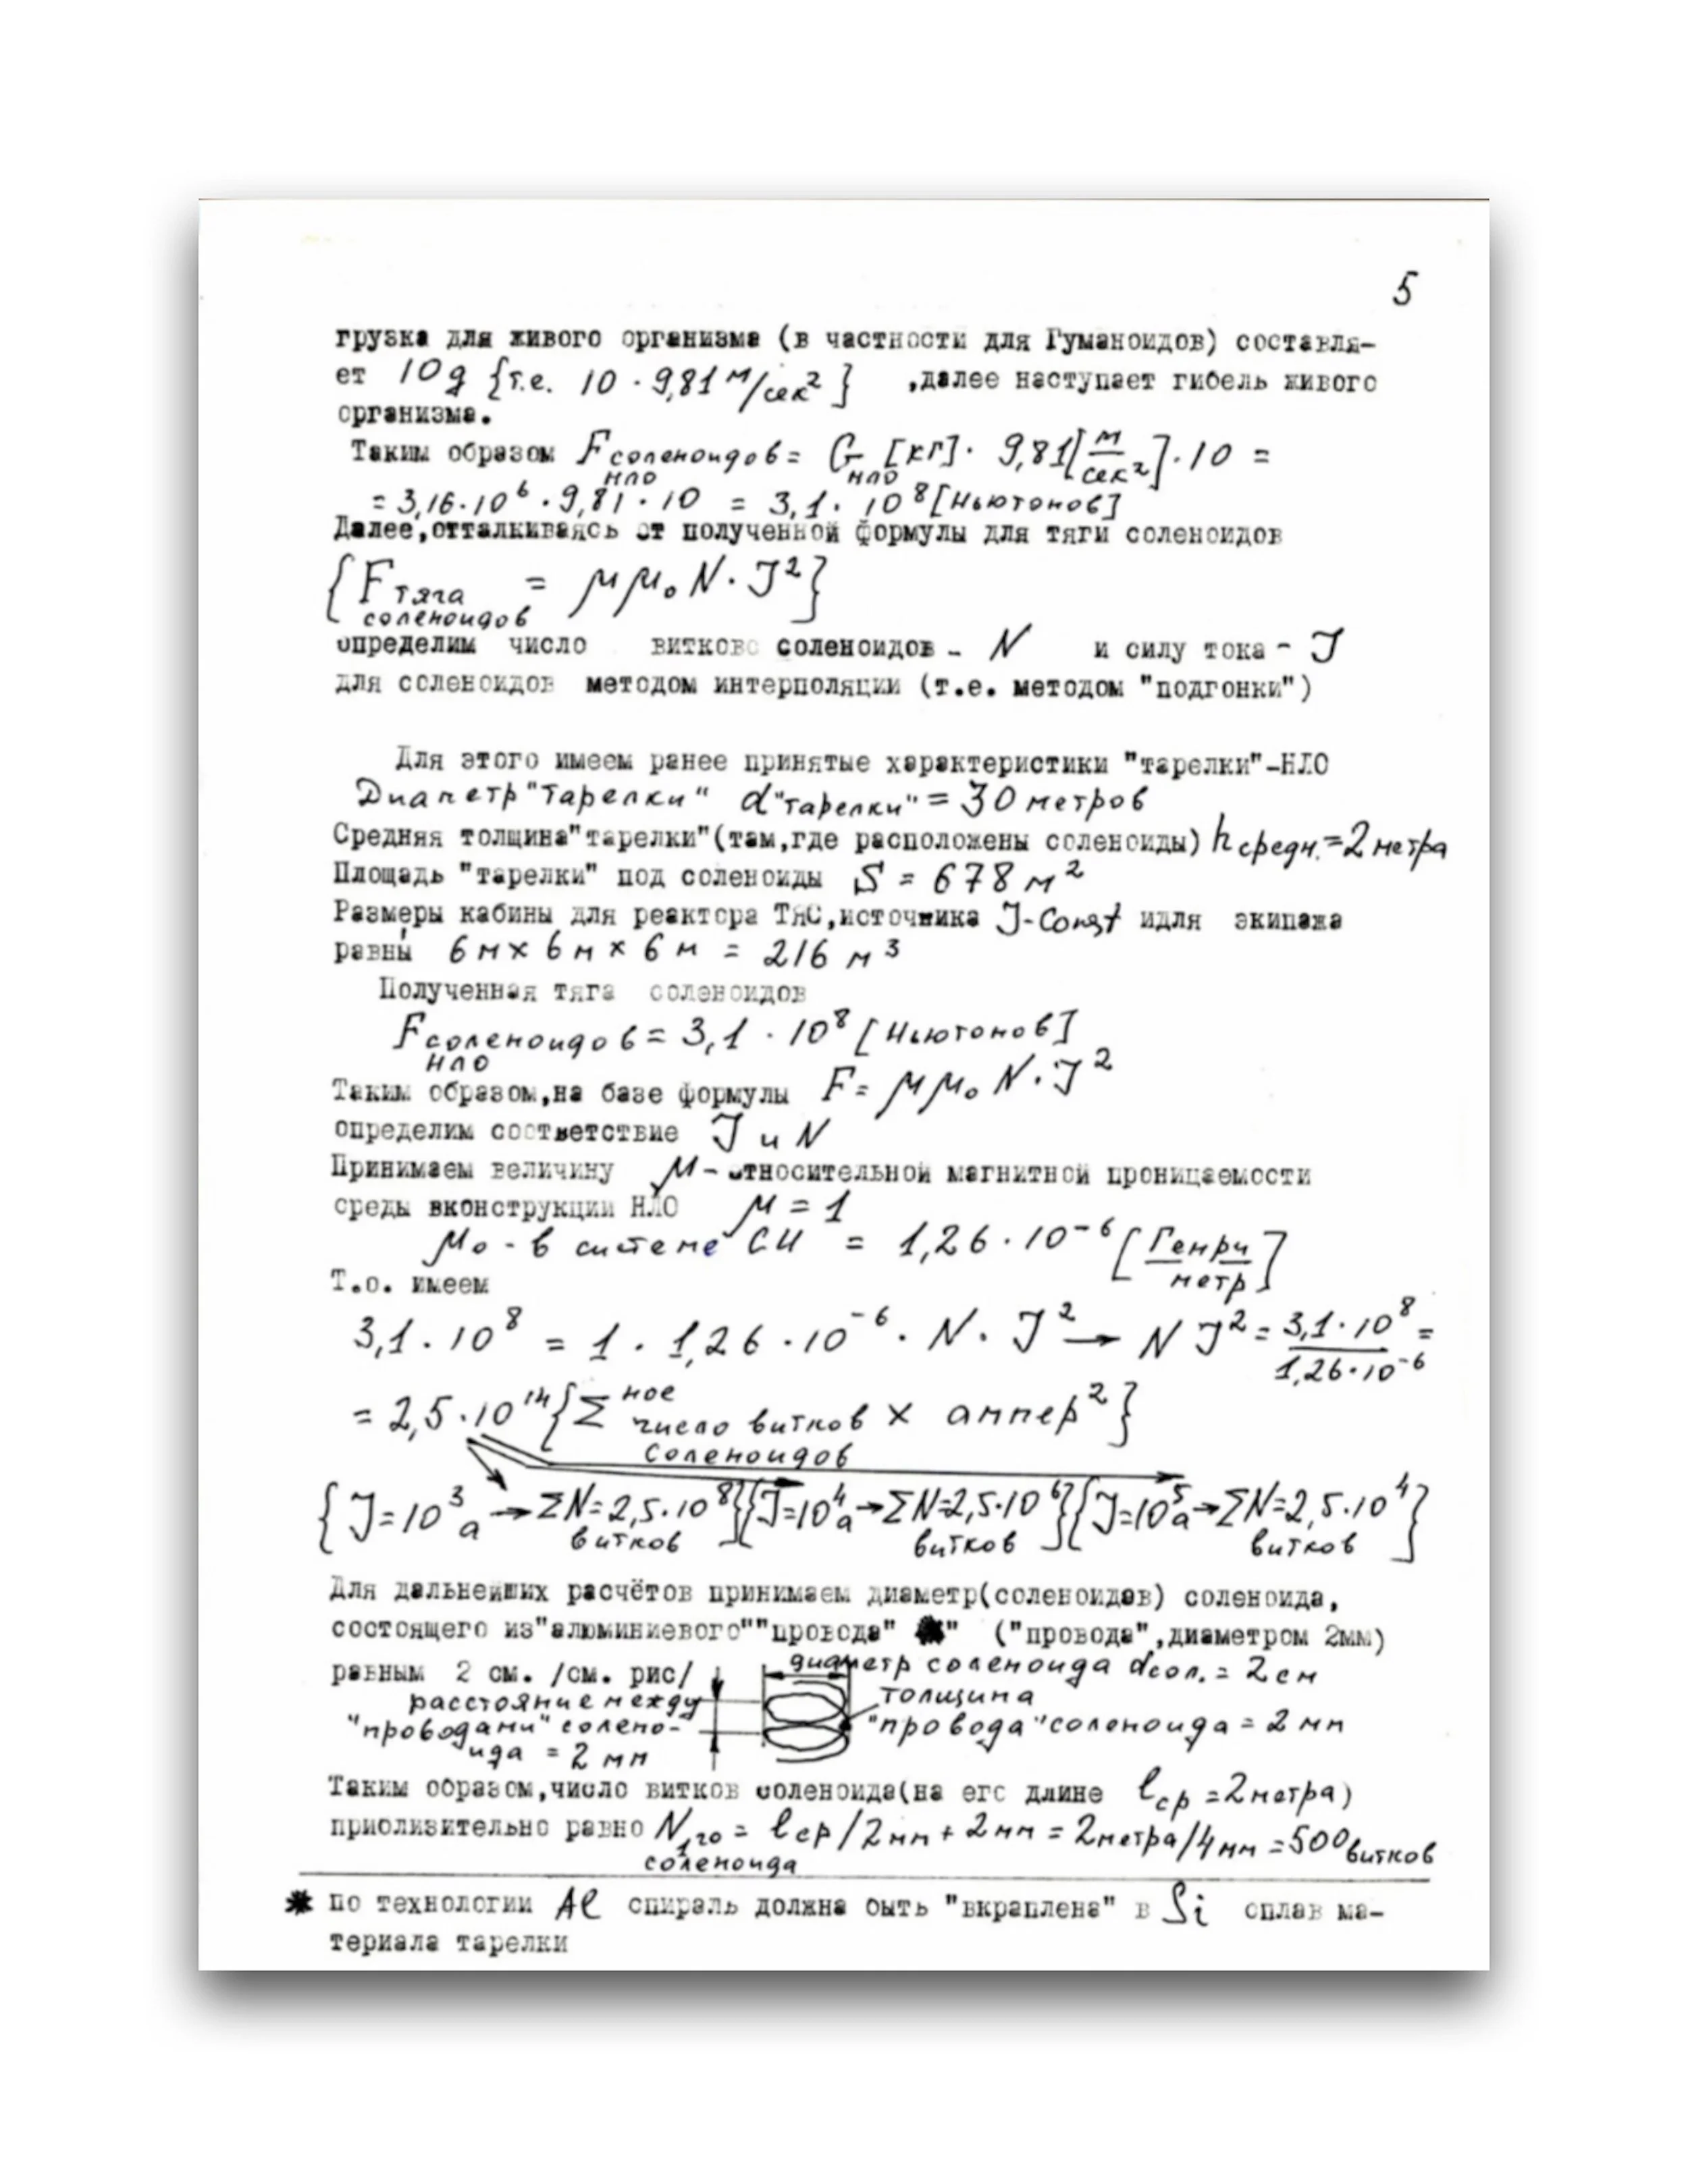 5
грузка для живого организма (в частности для Гуманоидов) составля-
ет 10g {т.е. 10 · 9,81 м/сек²} ,далее наступает гибель живого
организма.
Таким образом F соленоидов НЛО = G НЛО [кг] · 9,81 [м/сек²] · 10 =
= 3,16·10⁶ · 9,81 · 10 = 3,1 · 10⁸ [Ньютонов]
Далее,отталкиваясь от полученной формулы для тяги соленоидов
{F тяга соленоидов = μμ₀ N · J²}
определим число витковс соленоидов - N и силу тока - J
для соленоидов методом интерполяции (т.е. методом "подгонки")
Для этого имеем ранее принятые характеристики "тарелки"-НЛО
Диаметр "тарелки" d "тарелки" = 30 метров
Средняя толщина"тарелки"(там,где расположены соленоиды) h средн. = 2 метра
Площадь "тарелки" под соленоиды S = 678 м²
Размеры кабины для реактора ТЯС,источника J-Const идля экипажа
равны 6м × 6м × 6м = 216 м³
Полученная тяга соленоидов
F соленоидов НЛО = 3,1 · 10⁸ [Ньютонов]
Таким образом,на базе формулы F = μμ₀ N · J²
определим соответствие J и N
Принимаем величину μ - относительной магнитной проницаемости
среды вконструкции НЛО μ = 1
μ₀ - в системе СИ = 1,26 · 10⁻⁶ [Генри/метр]
Т.о. имеем
3,1 · 10⁸ = 1 · 1,26 · 10⁻⁶ · N · J² → N J² = 3,1·10⁸ / 1,26·10⁻⁶ =
= 2,5·10¹⁴ {Σ ное число витков соленоидов × ампер²}
{J=10³а → ΣN=2,5·10⁸ витков} {J=10⁴а → ΣN=2,5·10⁶ витков} {J=10⁵а → ΣN=2,5·10⁴ витков}
Для дальнейших расчётов принимаем диаметр(соленоидов) соленоида,
состоящего из"алюминиевого""провода" " ("провода",диаметром 2мм)
равным 2 см. /см. рис/ диаметр соленоида dсол. = 2см
расстояние между "проводами" солено-ида = 2 мм
толщина "провода" соленоида = 2 мм
Таким образом,число витков соленоида(на его длине lср = 2 метра)
приолизительно равно N1го соленоида = lср/2мм + 2мм = 2метра/4мм = 500 витков
* по технологии Al спираль должна быть "вкраплена" в Si сплав ма-
териала тарелки